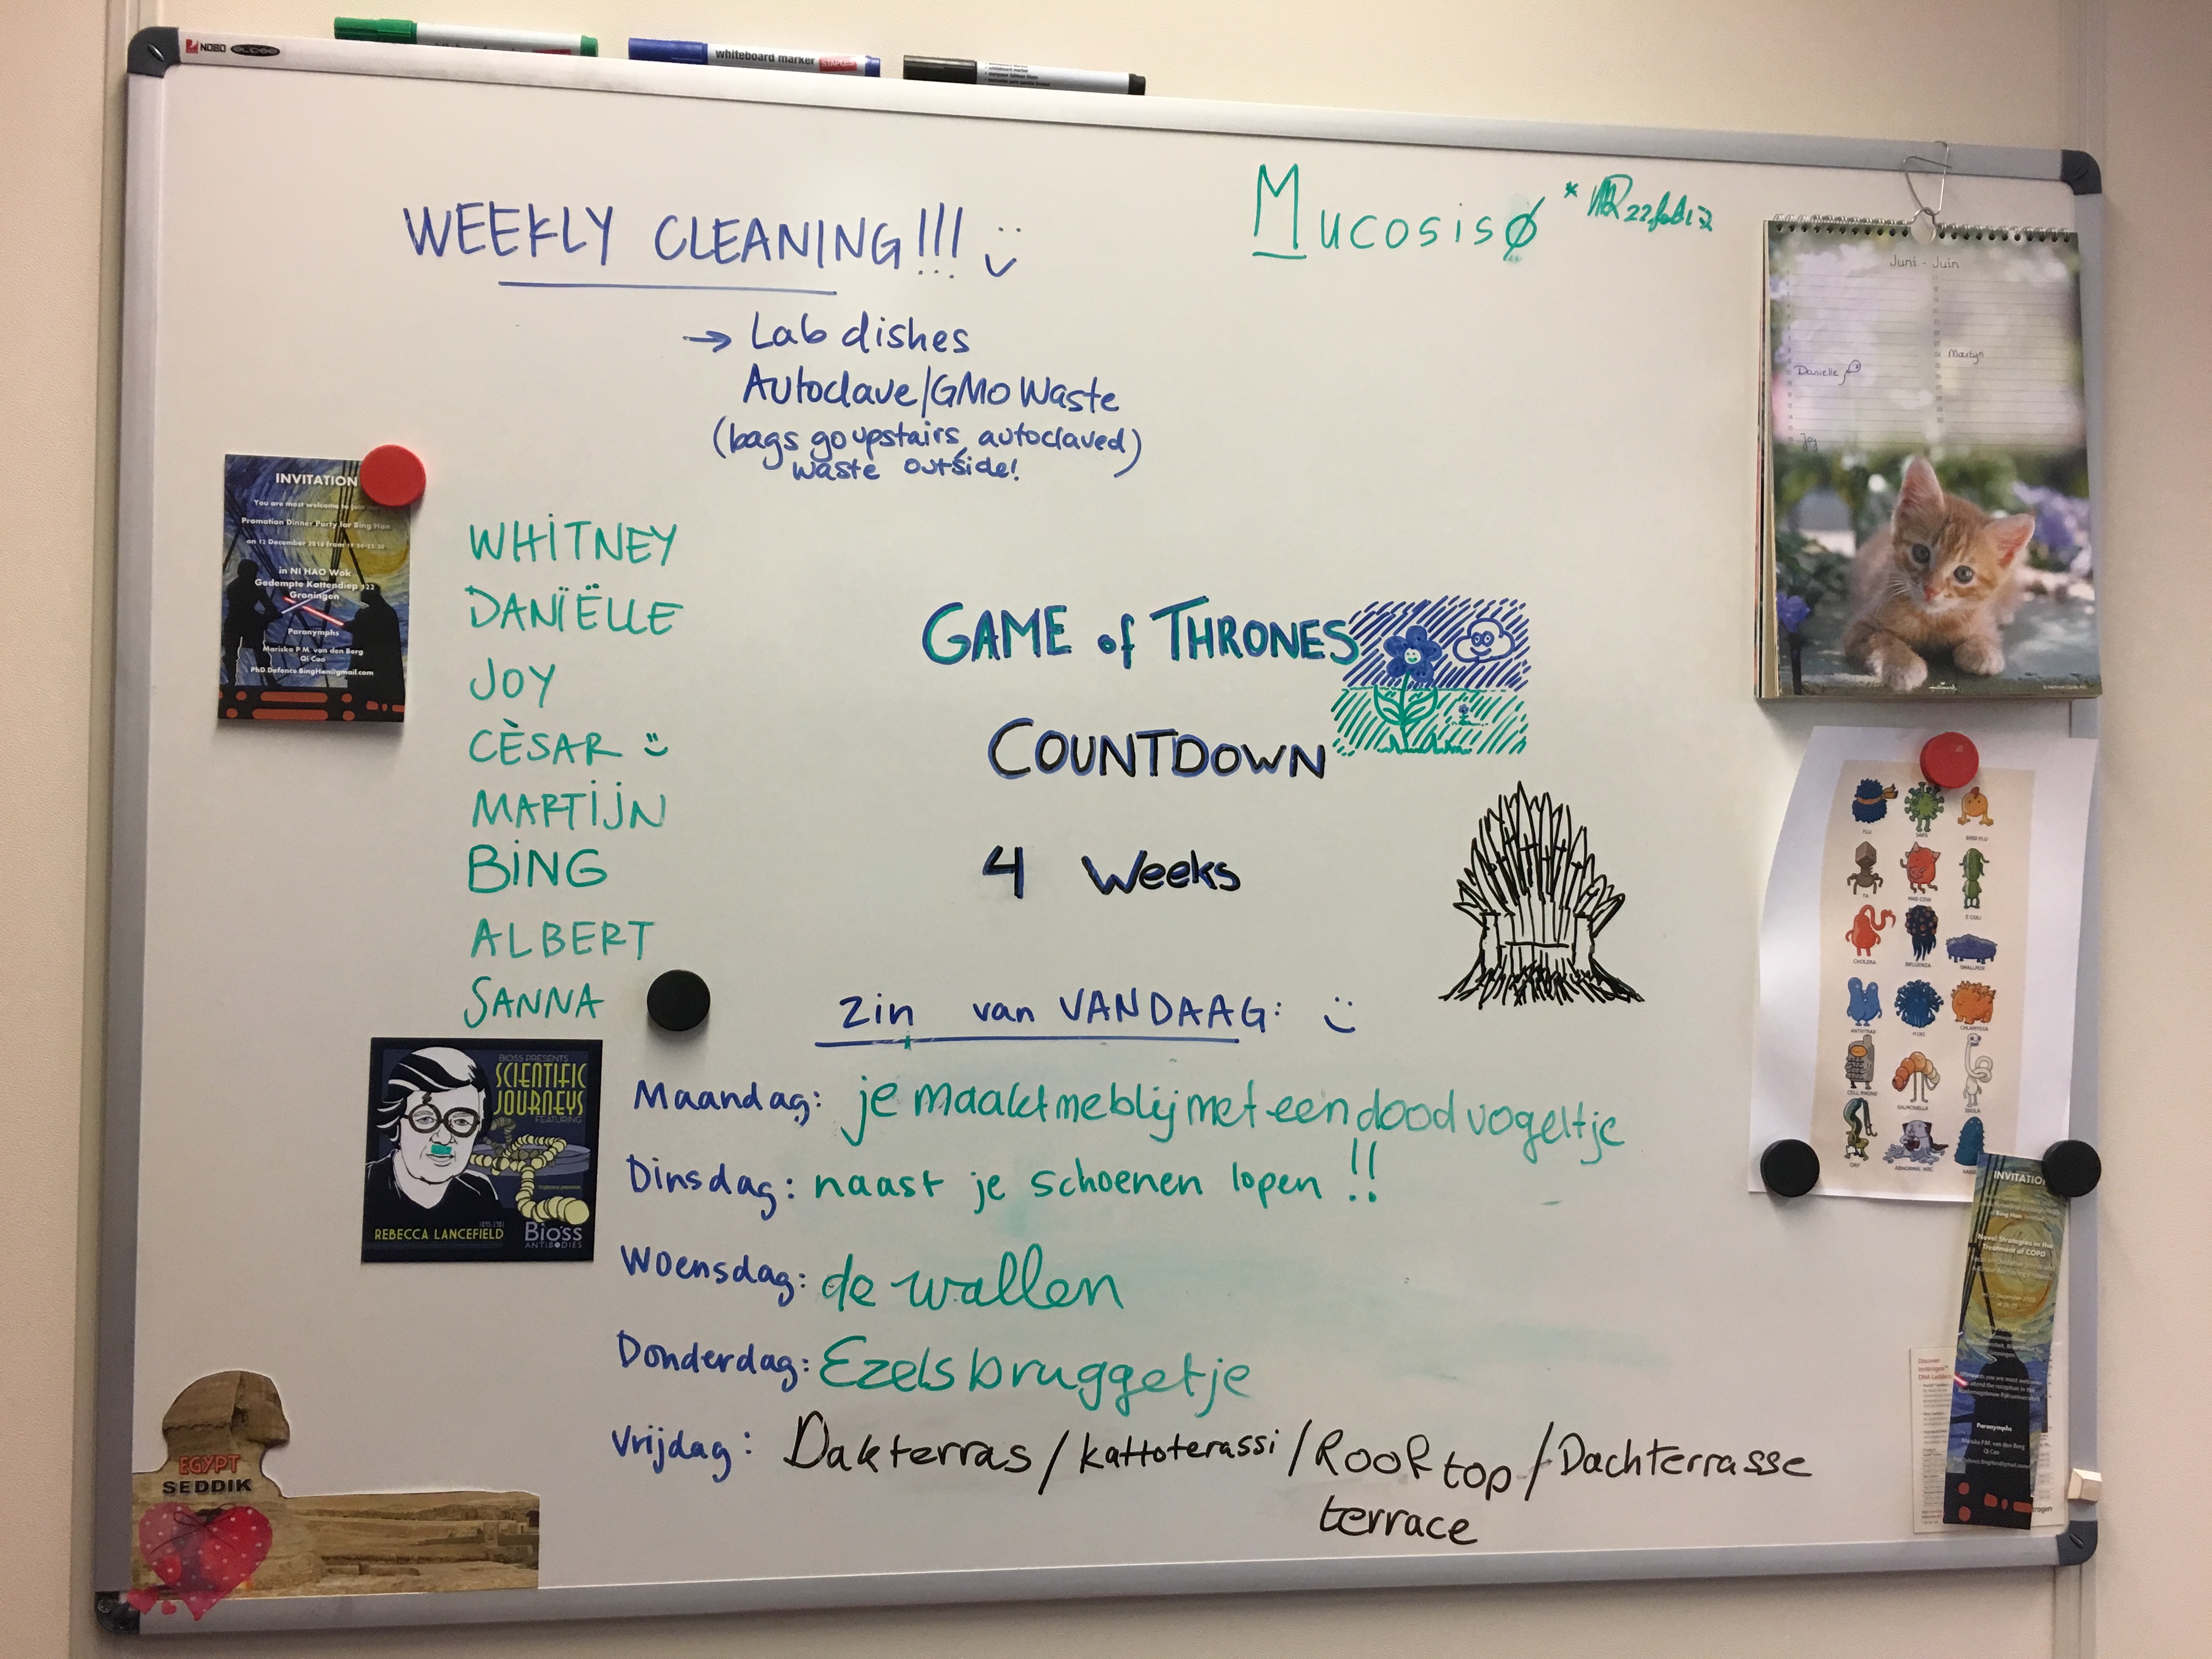 NOBO
whiteboard marker STAPLES
WEEKLY CLEANING!!!
→ Lab dishes
Autoclave/GMO Waste
(bags go upstairs, autoclaved)
waste outside!
Mucosis
Juni - Juin
Danielle
Martijn
Joy
INVITATION
You are most welcome to join the
Promotion Dinner Party for Bing Han
in NI HAO Wok
Gedempte Kattendiep 122
Groningen
Paranymphs
Mariska P.M. van den Berg
Qi Cao
PhD.Defence.BingHan@gmail.com
WHITNEY
DANÏËLLE
JOY
CÈSAR
MARTIJN
BING
ALBERT
SANNA
GAME of THRONES
COUNTDOWN
4 Weeks
FLU
SARS
BIRD FLU
T4
MAD COW
E COLI
CHOLERA
INFLUENZA
SMALLPOX
ANTHRAX
CHLAMYDIA
CELL PHONE
SALMONELLA
EBOLA
ORF
ABNORMAL WBC
Zin van VANDAAG:
Maandag: je maakt me blij met een dood vogeltje
Dinsdag: naast je schoenen lopen !!
Woensdag: de wallen
Donderdag: Ezelsbruggetje
Vrijdag: Dakterras / kattoterassi / Rooftop / Dachterrasse
terrace
BIOSS PRESENTS
SCIENTIFIC
JOURNEYS
FEATURING
REBECCA LANCEFIELD
Bioss
ANTIBODIES
EGYPT
SEDDIK
INVITATION
Bing Han
Novel Strategies in the
Treatment of COPD
Paranymphs
Mariska P.M. van den Berg
Qi Cao
Discover
DNA Ladders